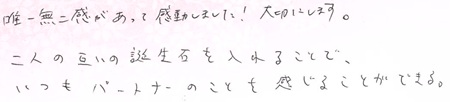 唯一無二感があって感動しました！大切にします。
二人の互いの誕生石を入れることで、
いつもパートナーのことを感じることができる。